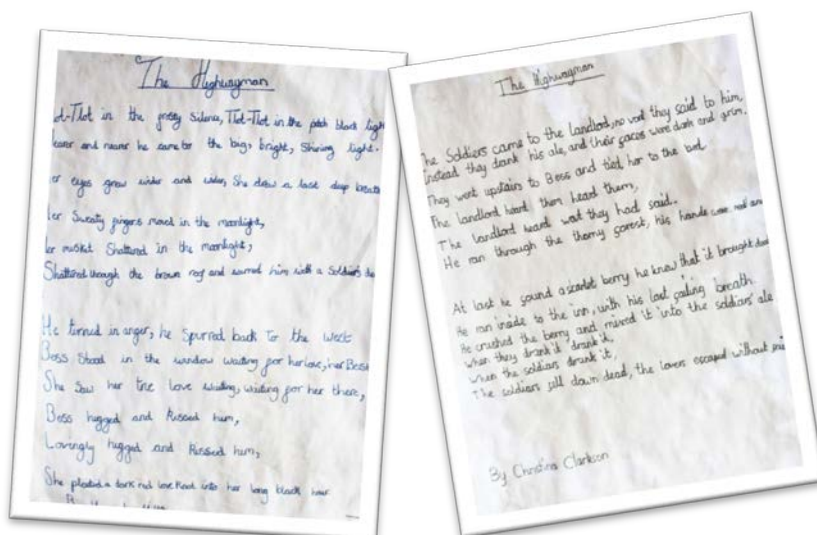 The Highwayman
ot-Tlot in the frosty silence, Tlot-Tlot in the pitch black light
earer and nearer he came to the big, bright, shining light.
er eyes grew wider and wider, She drew a last deep breath
er Sweaty fingers moved in the moonlight,
er musket Shattered in the moonlight,
Shattered through the brown and warned him with a Soldiers
He turned in anger, he spurred back To the West
Bess Stood in the window waiting for her love, her
She Saw her true love waiting, waiting for her there,
Bess hugged and Kissed him,
Lovingly hugged and Kissed him,
She pleated a dark red love Knot into her long black hair
The Highwayman
The Soldiers came to the landlord, no word they said to him,
Instead they drank his ale, and their faces were dark and grim.
They went upstairs to Bess and tied her to the bed.
The landlord heard them heard them,
The landlord heard wat they had said.
He ran through the thorny forest, his hands were red and
At last he found a scarlet berry he knew that it brought
He ran inside to the inn, with his last failing breath.
He crushed the berry and mixed it into the soldiers' ale
when they drank it drank it,
when the soldiers drank it,
The soldiers fell down dead, the lovers escaped without
By Christina Clarkson